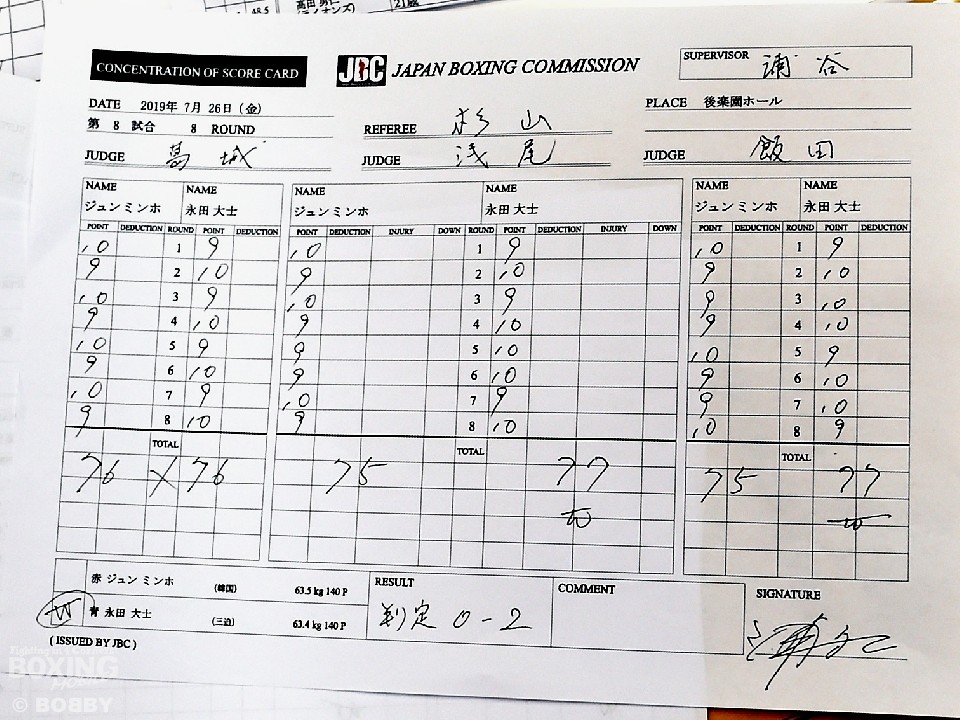 48.5
21戦
CONCENTRATION OF SCORE CARD
JBC JAPAN BOXING COMMISSION
SUPERVISOR 浦谷
DATE 2019年 7月 26日 (金)
PLACE 後楽園ホール
第 8 試合 8 ROUND
REFEREE 杉山
JUDGE 葛城
JUDGE 浅尾
JUDGE 飯田
NAME NAME NAME NAME NAME NAME
ジュン ミンホ 永田 大士 ジュン ミンホ 永田 大士 ジュン ミンホ 永田 大士
POINT DEDUCTION ROUND POINT DEDUCTION POINT DEDUCTION INJURY DOWN ROUND POINT DEDUCTION INJURY DOWN POINT DEDUCTION ROUND POINT DEDUCTION
10 1 9 10 1 9 10 1 9
9 2 10 9 2 10 9 2 10
10 3 9 10 3 9 9 3 10
9 4 10 9 4 10 9 4 10
10 5 9 9 5 10 10 5 9
9 6 10 9 6 10 9 6 10
10 7 9 10 7 9 9 7 10
9 8 10 9 8 10 10 8 9
TOTAL TOTAL TOTAL
76 X 76 75 77 75 77
赤 ジュン ミンホ (韓国) 63.5 kg 140 P
W 青 永田 大士 (三迫) 63.4 kg 140 P
RESULT
判定 0-2
COMMENT
SIGNATURE
( ISSUED BY JBC )
BOXING
© BOBBY